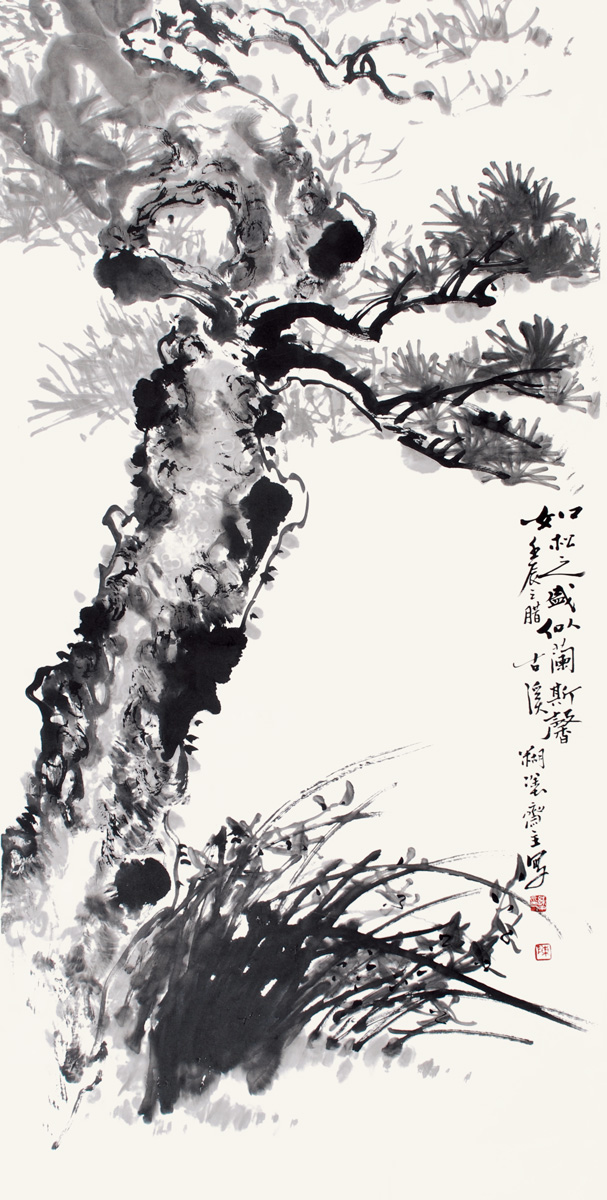 如松之盛似蘭斯馨齋主寫
壬辰之腊古溪